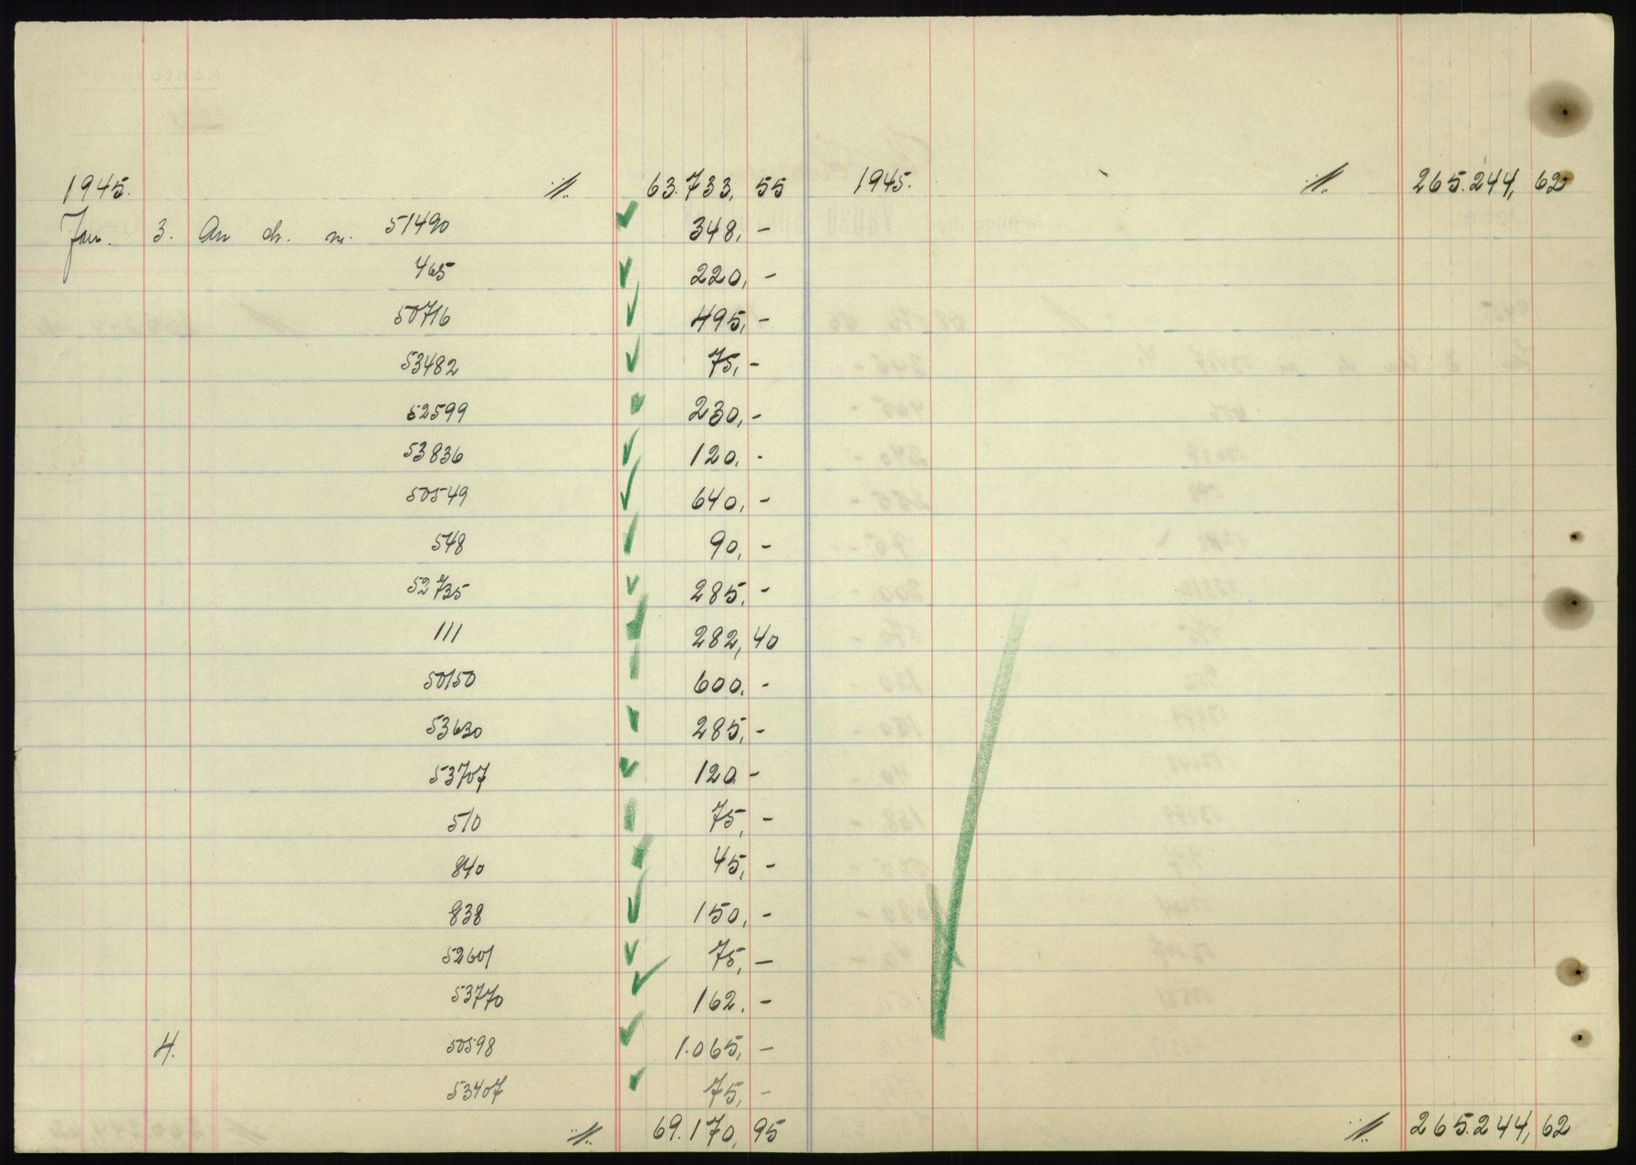 1945. 63.733,55
Jan. 3. An ch. n. 51490 348,-
465 220,-
50716 495,-
53482 75,-
52599 230,-
53836 120.-
50549 640,-
548 90,-
52735 285,-
111 282,40
50150 600.-
53630 285,-
53707 120-
510 75,-
840 45,-
838 150,-
52601 75,-
53770 162.-
4. 50598 1.065,-
53407 75,-
69.170,95
1945. 265.244,62
265.244,62